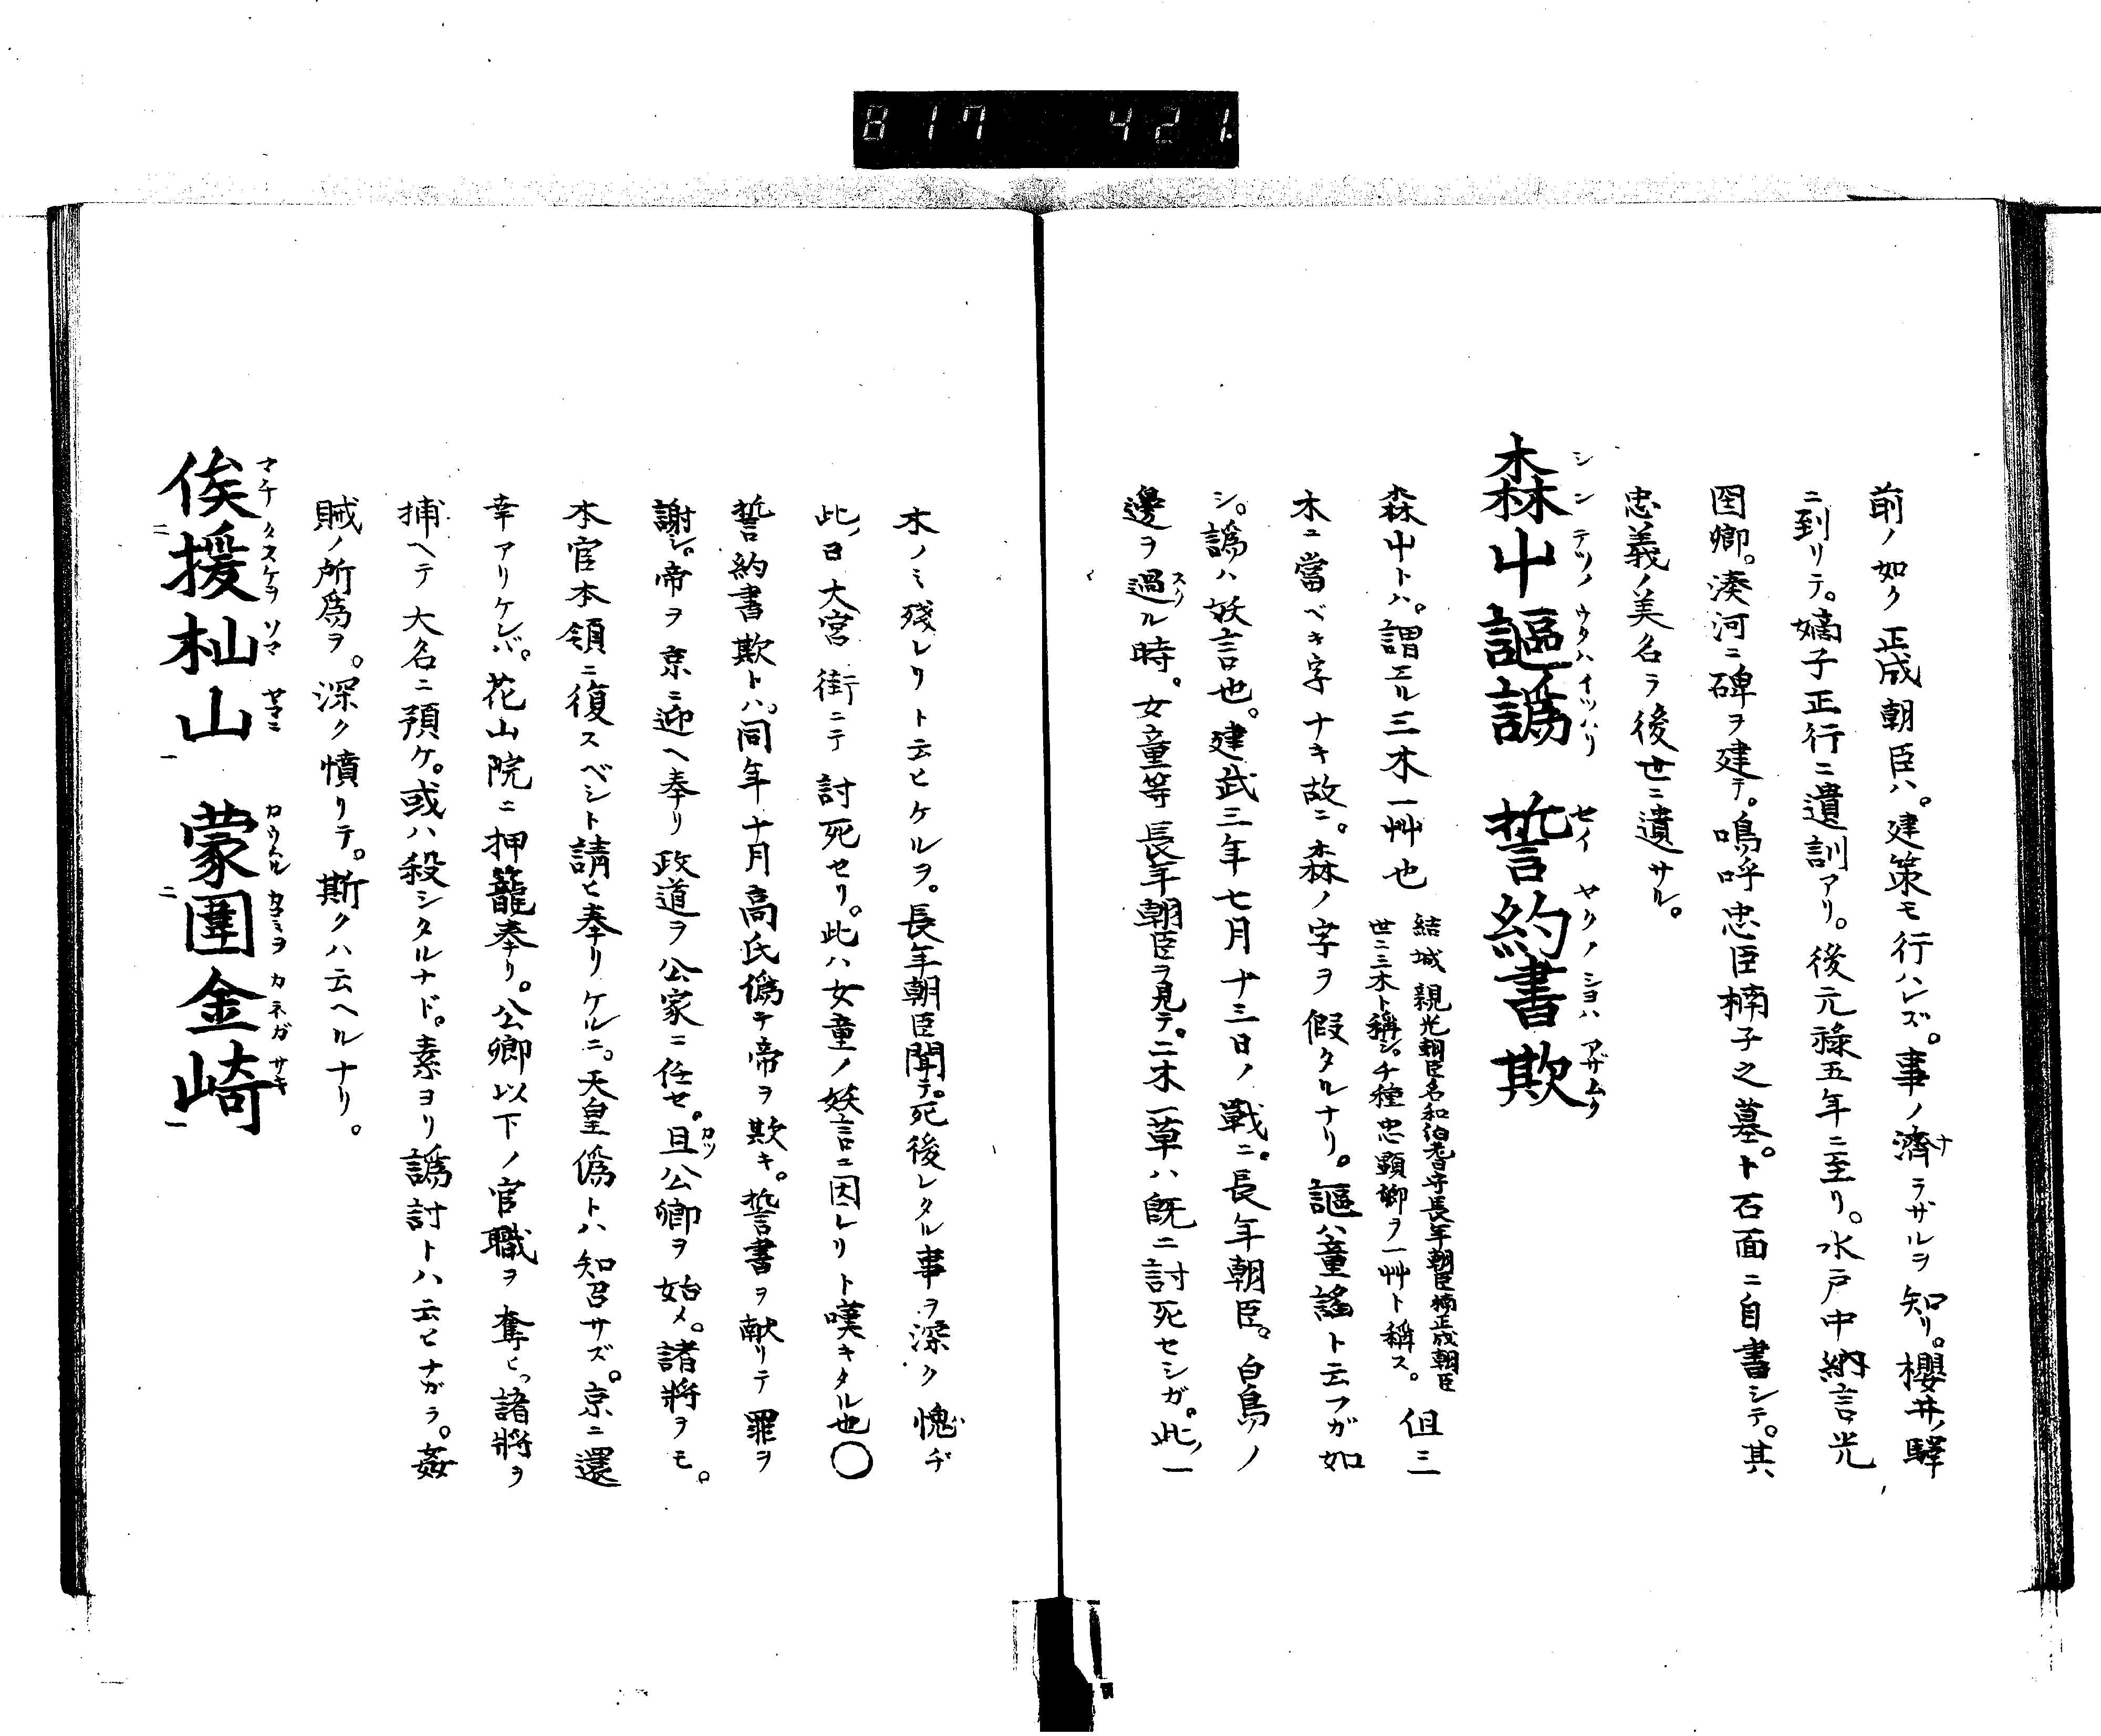 817 421
前ノ如ク正成朝臣ハ。建策モ行ハレズ。事ノ濟ラザルヲ知リ。櫻井ノ驛
ナ
ニ到リテ。嫡子正行ニ遺訓アリ。後元祿五年ニ至リ。水戸中納言光
圀卿。湊河ニ碑ヲ建テ。嗚呼忠臣楠子之墓。ト石面ニ自書シテ。其
忠義ノ美名ヲ後世ニ遺サル。
シンテツノウタハイツハリ セイヤクノシヨハアザムク
森屮謳譌 誓約書欺
森屮トハ。謂ユル三木一艸也 結城親光朝臣名和伯耆守長年朝臣楠正成朝臣
世ニ三木ト稱シ。千種忠顯卿ヲ一艸ト稱ス。 但三
木ニ當ベキ字ナキ故ニ。森ノ字ヲ假タルナリ。謳ハ童謠ト云フガ如
シ。譌ハ妖言也。建武三年七月十三日ノ戰ニ。長年朝臣。白鳥ノ
邊ヲ過ル時。女童等長年朝臣ヲ見テ。二木一草ハ既ニ討死セシガ。此ノ一
スク
木ノミ殘レリト云ヒケルヲ。長年朝臣聞テ。死後レタル事ヲ深ク愧ヂ
此ノ日大宮街ニテ討死セリ。此ハ女童ノ妖言ニ因レリト嘆キタル也○
誓約書欺トハ。同年十月高氏僞テ帝ヲ欺キ。誓書ヲ献リテ罪ヲ
謝シ。帝ヲ京ニ迎ヘ奉リ政道ヲ公家ニ任セ。且公卿ヲ始メ。諸將ヲモ。
カツ
本官本領ニ復スベシト請ヒ奉リケルニ。天皇僞トハ知召サズ。京ニ還
幸アリケレバ。花山院ニ押籠奉リ。公卿以下ノ官職ヲ奪ヒ。諸將ヲ
捕ヘテ大名ニ預ケ。或ハ殺シタルナド。素ヨリ譌討トハ云ヒナガラ。姦
賊ノ所爲ヲ。深ク憤リテ。斯クハ云ヘルナリ。
マチクスケヲソマヤマニ カウムルカコミヲカネガサキ
俟二援杣山一 蒙二圍金崎一